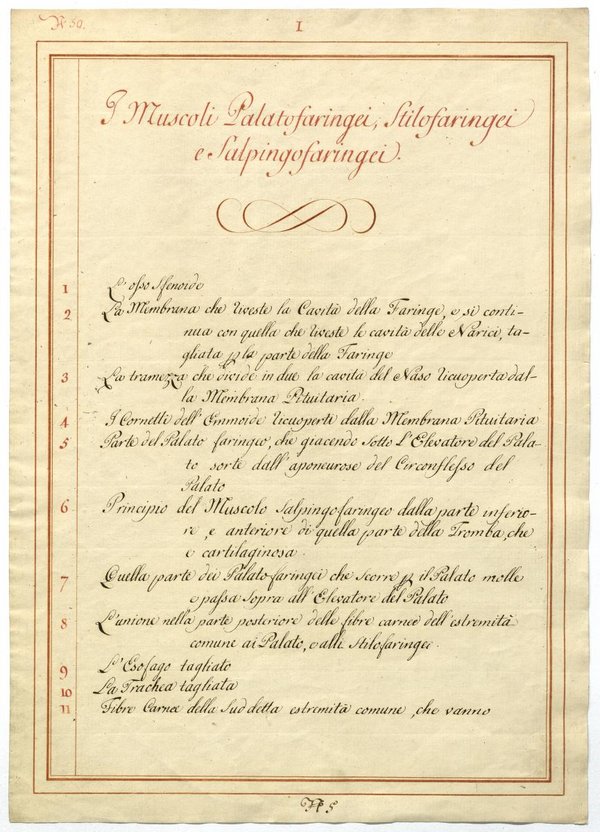 N 50.
I
I Muscoli Palatofaringei, Stilofaringei
e Salpingofaringei.
1 L'osso Sfenoide
2 La Membrana che Uveste la Cavità della Faringe, e si conti-
nua con quella che Uveste le cavità delle Narici, ta-
gliata p la parte della Faringe
3 La tramezza che divide in due la cavità del Naso Ucuoperta dal-
la Membrana Pituitaria.
4 I Cornetti dell' Emmoide Ucuoperti dalla Membrana Pituitaria
5 Parte del Palato faringeo, che giacendo sotto L'Elevatore del Pala-
to sorte dall' aponeurose del Circonflesso del
Palato
6 Principio del Muscolo Salpingofaringeo dalla parte inferio-
re, e anteriore di quella parte della Tromba, che
è cartilaginosa.
7 Quella parte dei Palato-faringei che scorre p il Palato molle
e passa sopra all' Elevatore del Palato
8 L'unione nella parte posteriore delle fibre carnee dell' estremità
comune ai Palato, e alli Stilofaringei.
9 L'Esofago tagliato
10 La Trachea tagliata
11 Fibre Carnee della Suddetta estremità comune, che vanno
N 5